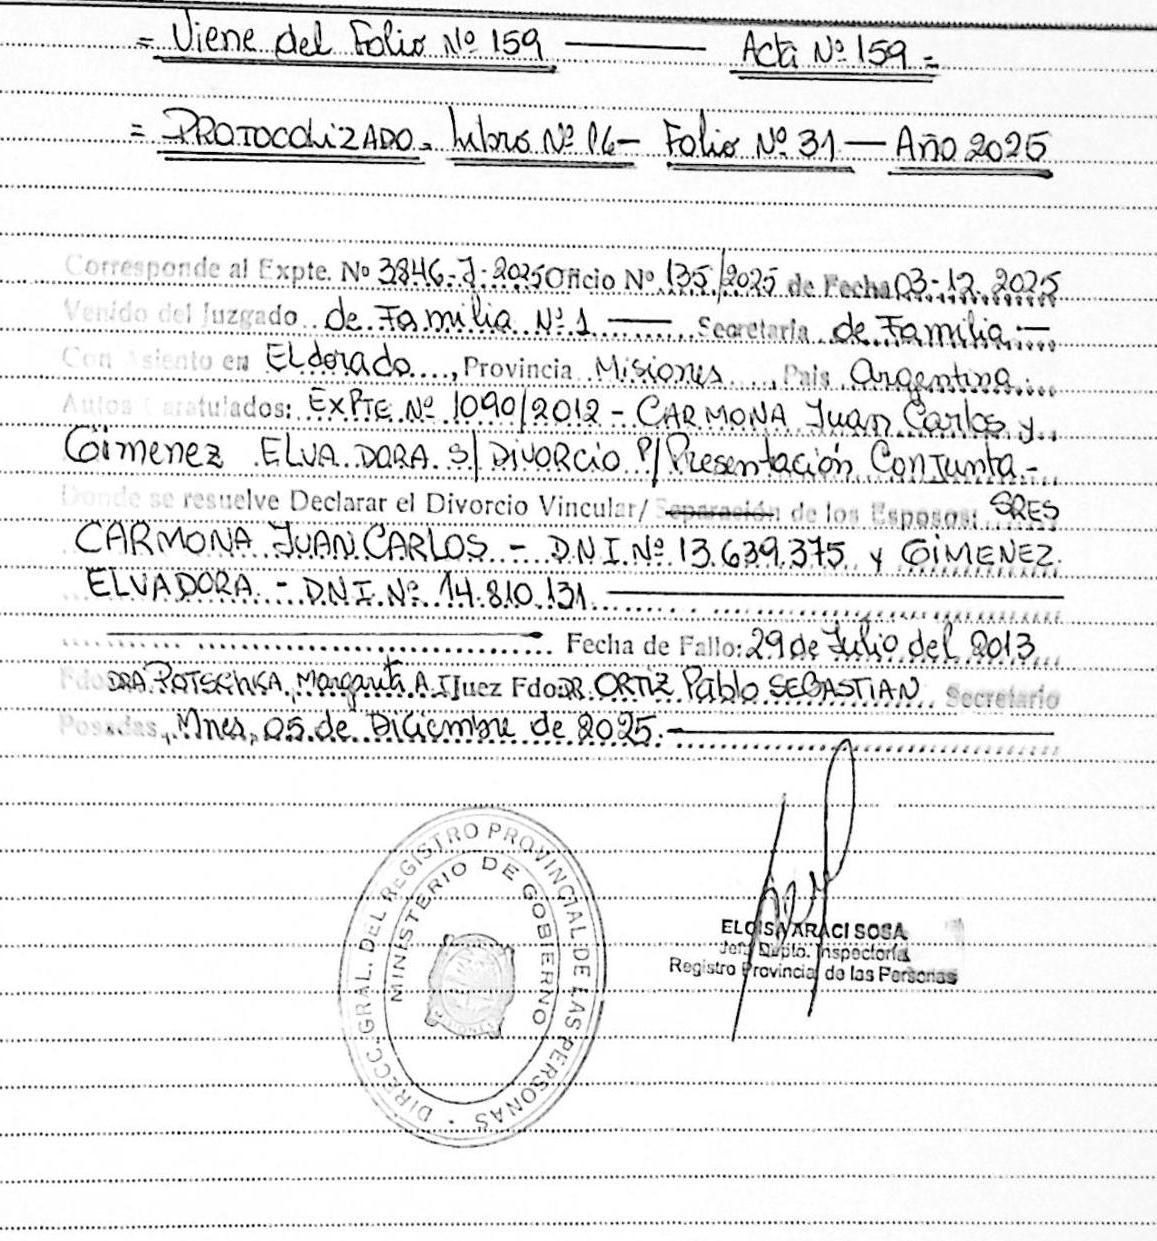 = Viene del Folio Nº 159 ——— Acta Nº 159 =
= PROTOCOLIZADO = Libro Nº 16 — Folio Nº 31 — Año 2025
Corresponde al Expte. Nº 3846-J-2025 Oficio Nº 135/2025 de Fecha 03-12-2025
Venido del Juzgado de Familia Nº 1 ——— Secretaria de Familia.—
Con Asiento en Eldorado...., Provincia Misiones...., Pais Argentina....
Autos Caratulados: EXPTE Nº 1090/2012 - CARMONA Juan Carlos y..
Gimenez ELVA DORA S/ Divorcio P/ Presentación Conjunta.-
Donde se resuelve Declarar el Divorcio Vincular/ Separación de los Esposos: SRES
CARMONA JUAN CARLOS - D.N.I. Nº 13.639.375 y GIMENEZ
ELVA DORA - D.N.I. Nº 14.810.131 ———
——— Fecha de Fallo: 29 de Julio del 2013
Fdo DRA. POTSCHKA, Margarita A. I Juez Fdo: DR. ORTIZ Pablo SEBASTIAN Secretario
Posadas, Mnes, 05 de Diciembre de 2025.- ———
DIRECC. GRAL. DEL REGISTRO PROVINCIAL DE LAS PERSONAS
MINISTERIO DE GOBIERNO
ELOISA ARACI SOSA
Jefa Dupto. Inspectoría
Registro Provincial de las Personas